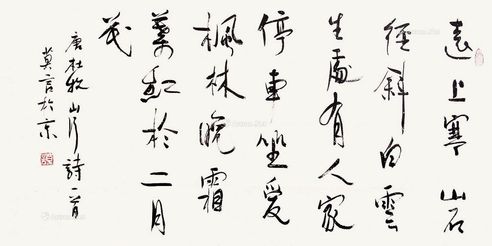 遠上寒山石
徑斜白雲
生處有人家
停車坐愛
楓林晚霜
葉紅於二月
花
唐杜牧山行詩一首
莫言於京